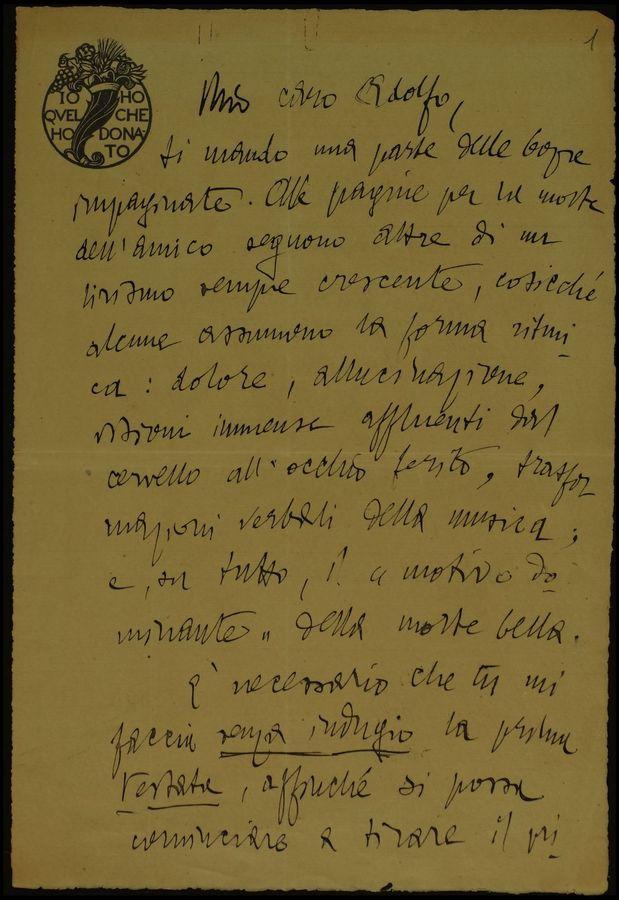 1
IO HO
QVEL CHE
HO DONA-
TO
Mio caro Adolfo,
ti mando una parte delle bozze
impaginate. Alle pagine per la morte
dell'amico seguono altre di un
lirismo sempre crescente, cosicché
alcune assumono la forma ritmi-
ca: dolore, allucinazione,
visioni immense affluenti dal
cervello all'occhio ferito, trasfor
mazioni verbali della musica;
e, su tutto, il "motivo do-
minante" della morte bella.
È necessario che tu mi
faccia senza indugio la prima
testata, affinché si possa
cominciare a tirare il pri-